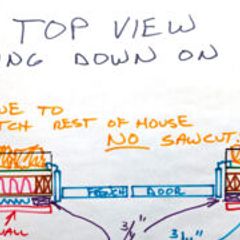 TOP VIEW
ING DOWN ON
UE TO
TCH REST OF HOUSE
NO SAWCUT
FRENCH DOOR
3/4" 3/4"
ALL